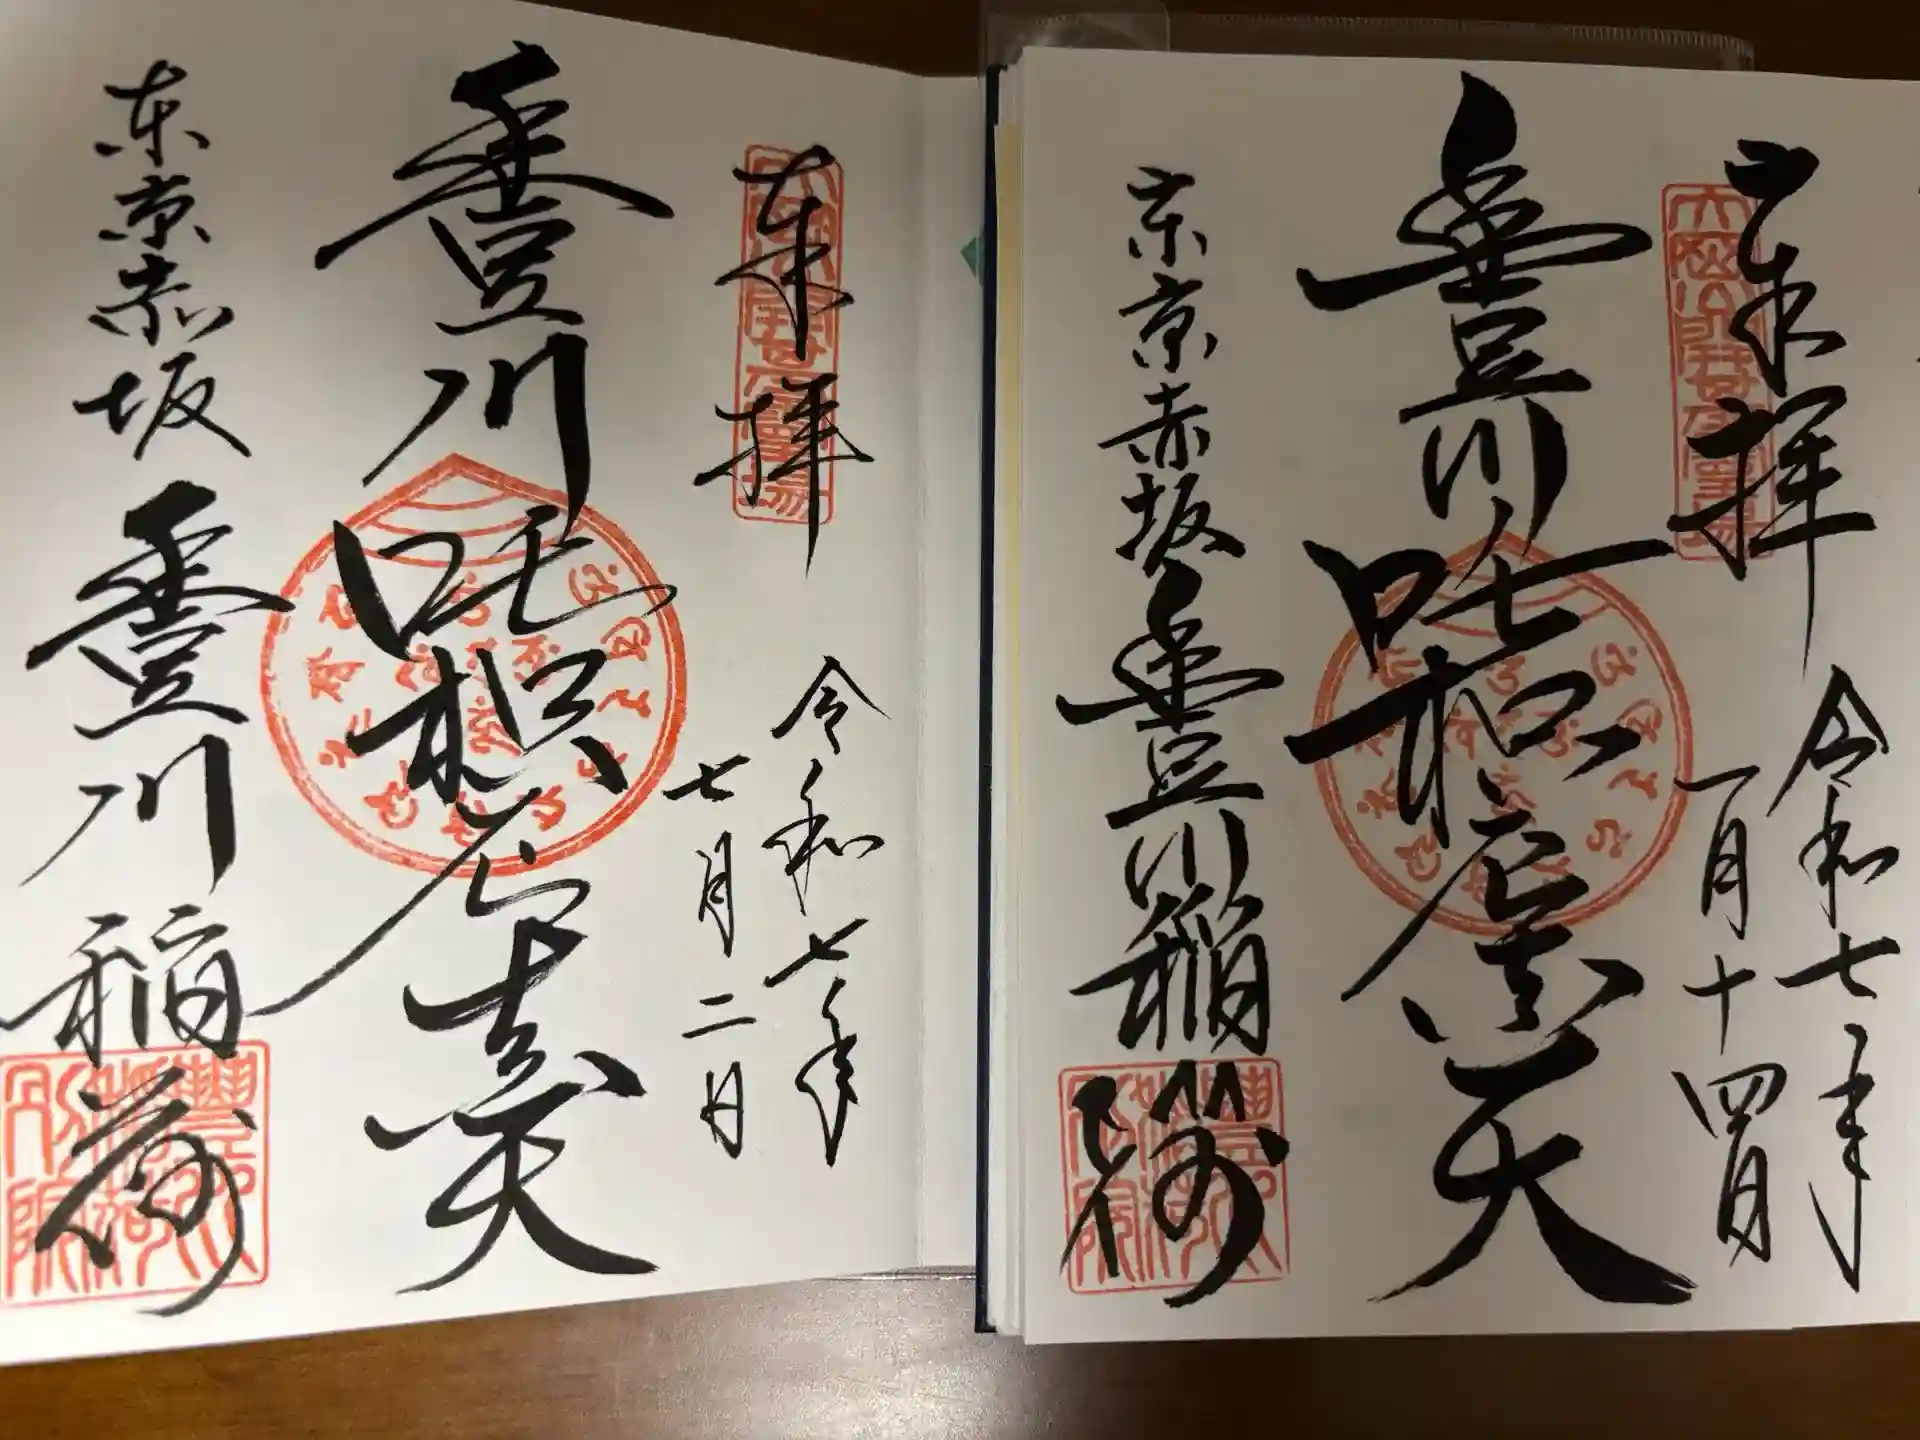 奉拝
令和七年
七月二日
豊川吒枳尼真天
東京赤坂
豊川稲荷
奉拝
令和七年
一月十四日
豊川吒枳尼真天
東京赤坂豊川稲荷